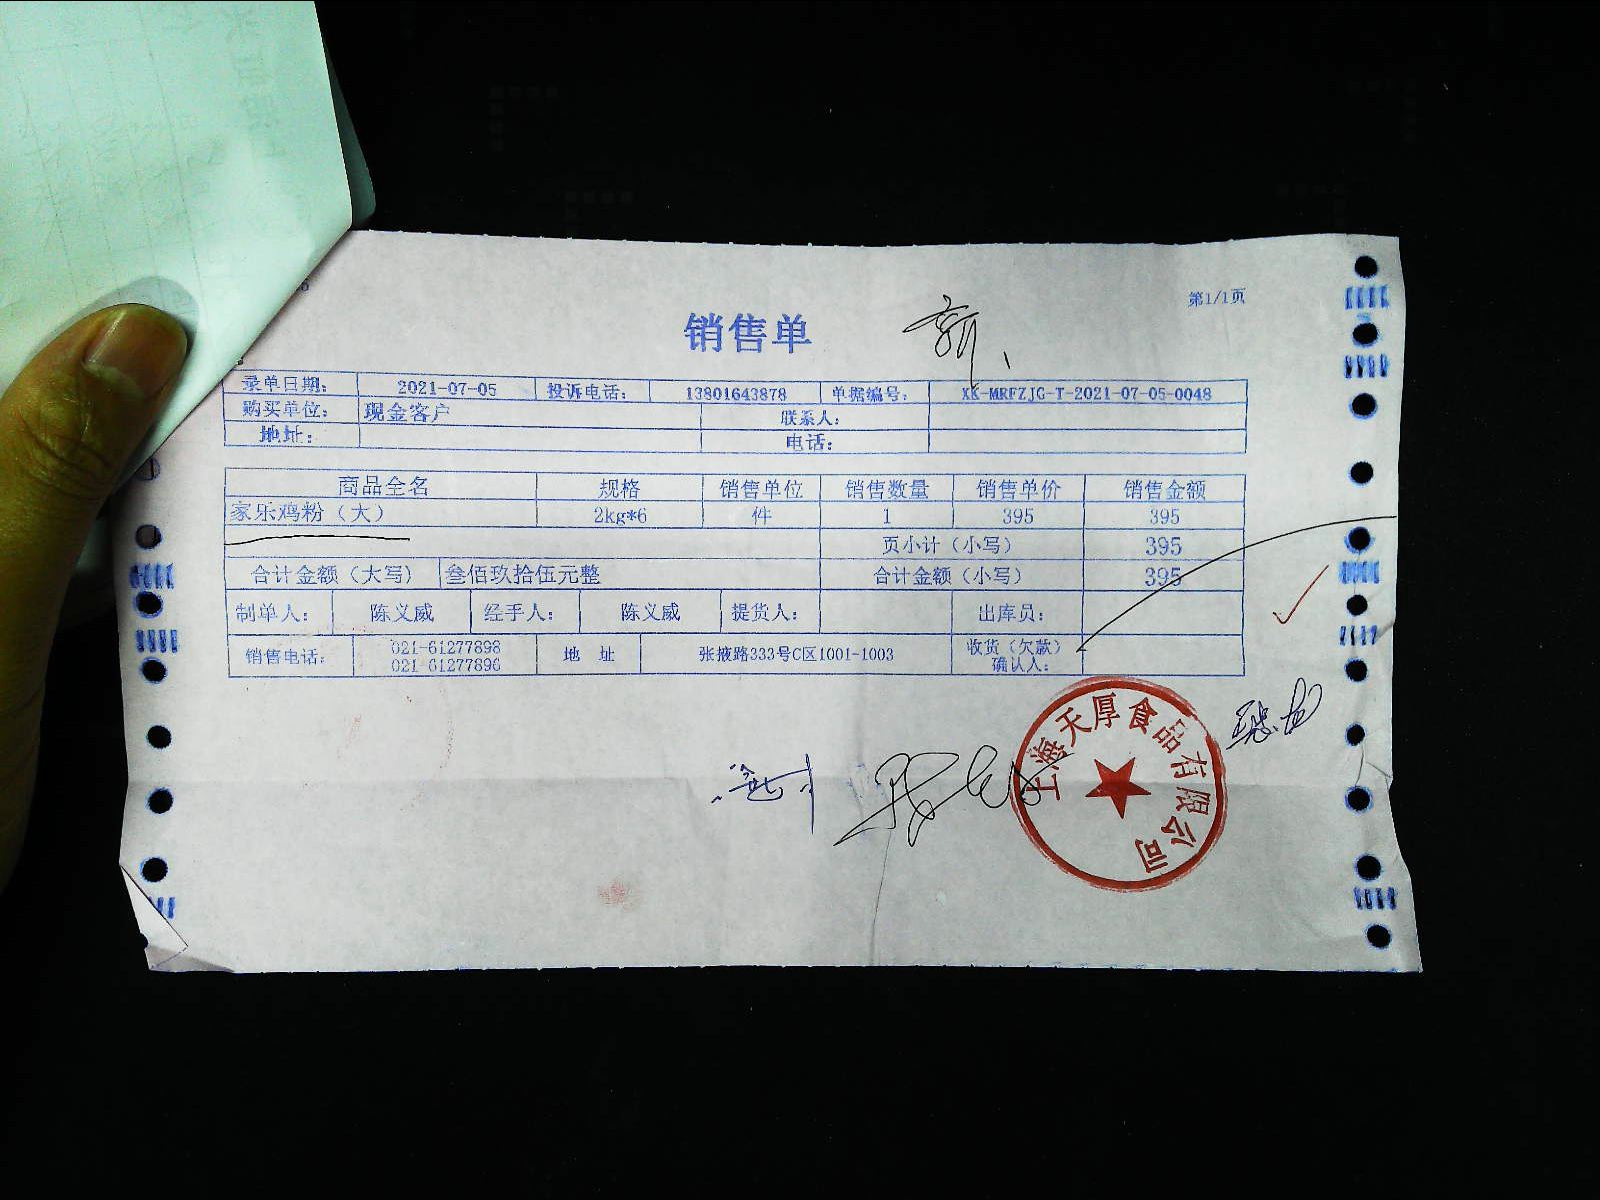 第1/1页
销售单
录单日期: 2021-07-05 投诉电话: 13801643878 单据编号: XK-MRFZJC-T-2021-07-05-0048
购买单位: 现金客户 联系人:
地址: 电话:
商品全名 规格 销售单位 销售数量 销售单价 销售金额
家乐鸡粉（大） 2kg*6 件 1 395 395
页小计（小写） 395
合计金额（大写） 叁佰玖拾伍元整 合计金额（小写） 395
制单人: 陈义威 经手人: 陈义威 提货人: 出库员:
销售电话: 021-61277898 地 址 张掖路333号C区1001-1003 收货（欠款）
021-61277896 确认人:
上海天厚食品有限公司